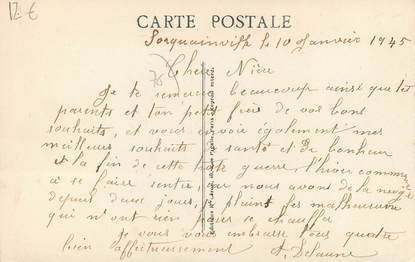 12 €
CARTE POSTALE
Sorquainville le 10 Janvier 1945
Chère Nièce
Je te remercie beaucoup ainsi que tes
parents et ton petit frère de vos bons
souhaits, et vous envoie également mes
meilleurs souhaits de santé et de bonheur
et la fin de cette guerre, l'hiver commence
à se faire sentir, car nous avons de la neige
depuis deux jours, je plains les malheureux
qui n'ont rien pour se chauffer
Je vous embrasse tous quatre
bien affectueusement
A. Delaune